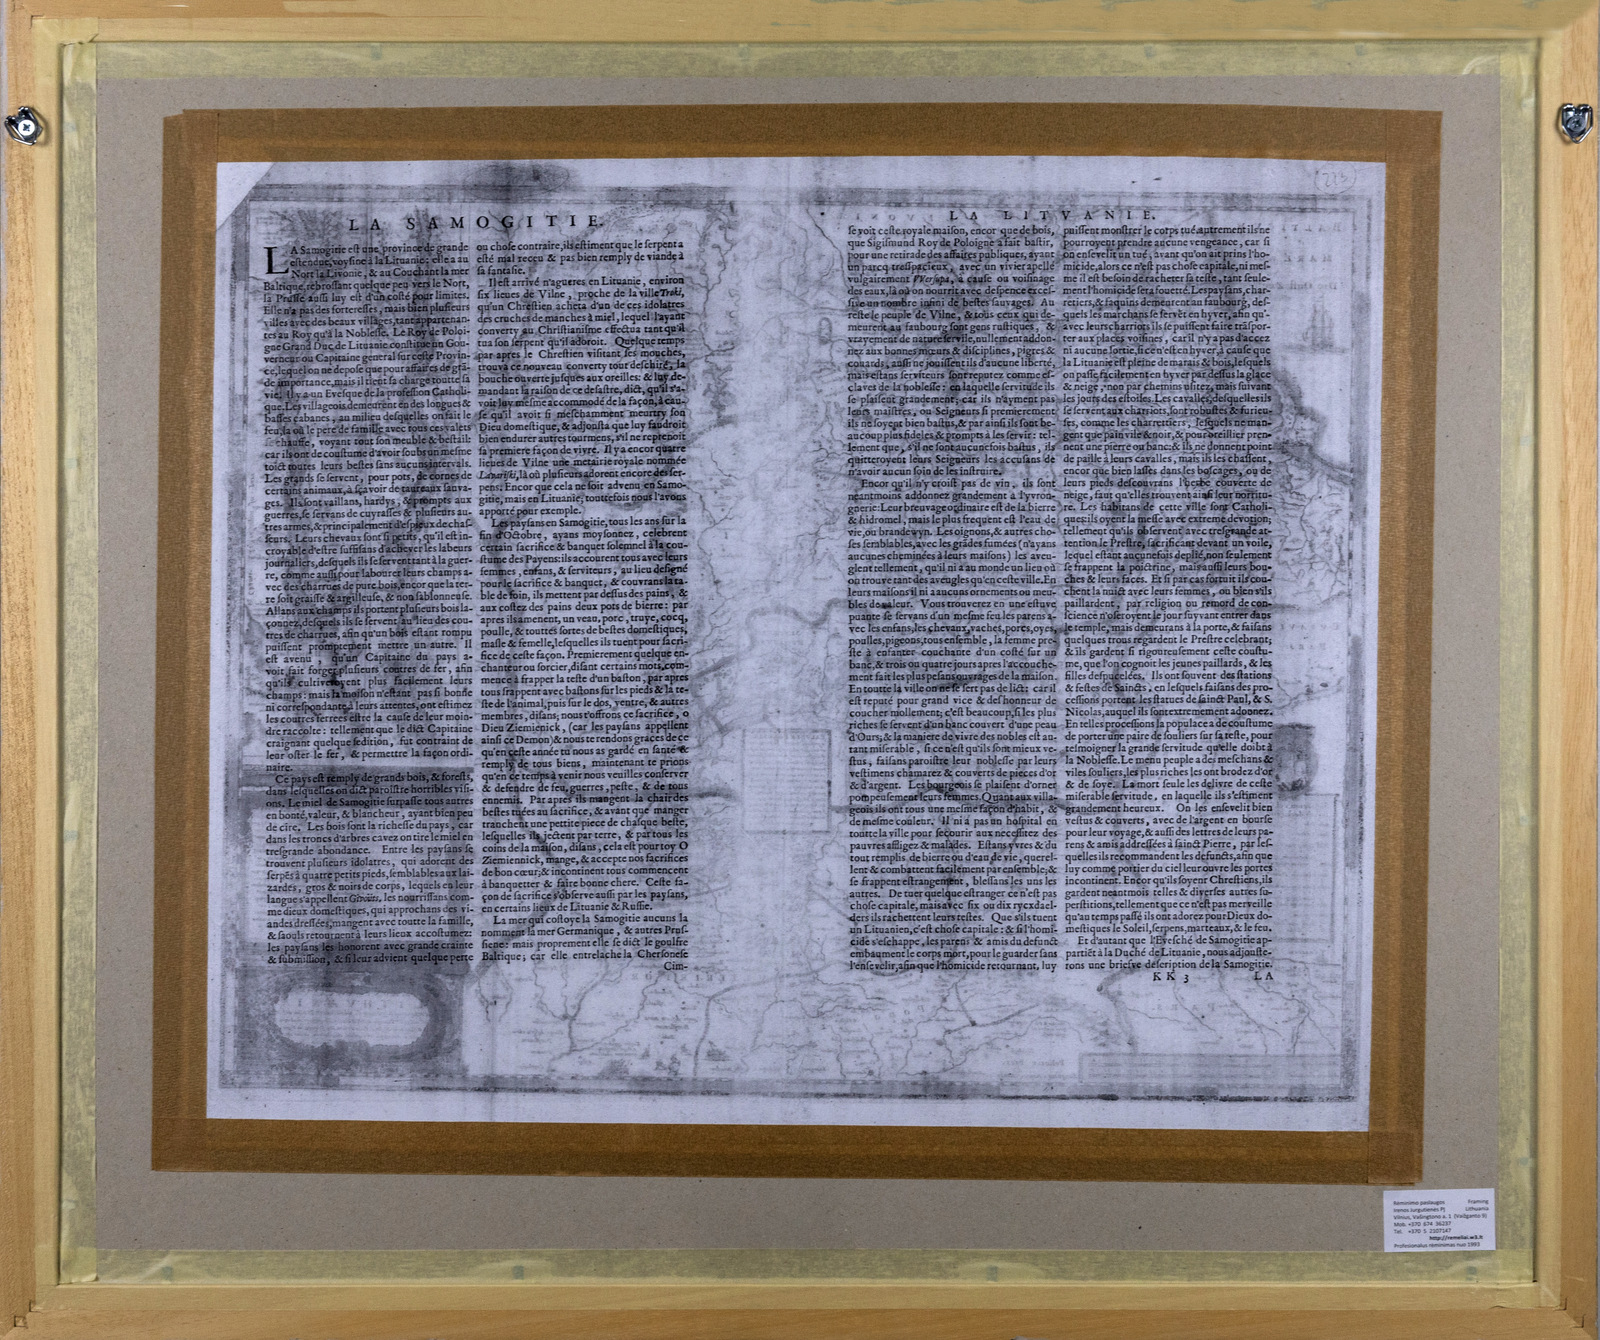 LA SAMOGITIE.
LA Samogitie est une province de grande
estendue, voysine à la Lituanie: elle a au
Nort la Livonie, & au Couchant la mer
Baltique, rebrossant quelque peu vers le Nort,
la Prusse aussi luy est d'un costé pour limites.
Elle n'a pas des forteresses, mais bien plusieurs
villes avec des beaux villages, tant appartenan-
tes au Roy qu'à la Noblesse. Le Roy de Poloi-
gne Grand Duc de Lituanie constitue un Gou-
verneur ou Capitaine general sur ceste Provin-
ce, lequel on ne depose que pour affaires de grã-
de importance, mais il tient sa charge toutte sa
vie; Il y a un Evesque de la profession Catholi-
que. Les villageois demeurent en des longues &
basses cabanes, au milieu desquelles on fait le
feu, là où le pere de famille avec tous ces valets
se chauffe, voyant tout son meuble & bestail:
car ils ont de coustume d'avoir soubs un mesme
toict toutes leurs bestes sans aucuns intervals.
Les grands se servent, pour pots, de cornes de
certains animaux, à sçavoir de taureaux sauva-
ges. Ils sont vaillans, hardys, & prompts aux
guerres, se servans de cuyrasses & plusieurs au-
tres armes, & principalement d'espieux de chas-
seurs. Leurs chevaux sont si petits, qu'il est in-
croyable d'estre suffisans d'achever les labeurs
journaliers, desquels ils se servent tant à la guer-
re, comme aussi pour labourer leurs champs a-
vec des charrues de pure bois, encor que la ter-
re soit graisse & argilleuse, & non sablonneuse.
Allans aux champs ils portent plusieurs bois la-
çonnez, desquels ils se servent au lieu des cou-
tres de charrues, afin qu'un bois estant rompu
puissent promptement mettre un autre. Il
est avenu, qu'un Capitaine du pays a-
voit fait forger plusieurs contres de fer, afin
qu'ils cultiveroyent plus facilement leurs
champs: mais la moison n'estant pas si bonne
ni correspondante à leurs attentes, ont estimez
les coutres ferrees estre la cause de leur moin-
dre raccolte: tellement que le dict Capitaine
craignant quelque sedition, fut contraint de
leur oster le fer, & permettre la façon ordi-
naire.
Ce pays est remply de grands bois, & forests,
dans lesquelles on dict paroistre horribles visi-
ons. Le miel de Samogitie surpasse tous autres
en bonté, valeur, & blancheur, ayant bien peu
de cire. Les bois sont la richesse du pays, car
dans les troncs d'arbres cavez on tire le miel en
tresgrande abondance. Entre les paysans se
trouvent plusieurs idolatres, qui adorent des
serpēs à quatre petits pieds, semblables aux lai-
zardes, gros & noirs de corps, lequels en leur
langue s'appellent Givoits, les nourrissans com-
me dieux domestiques, qui approchans des vi-
andes dressées, mangent avec toutte la famille,
& saouls retournent à leurs lieux accostumez:
les paysans les honorent avec grande crainte
& submission, & si leur advient quelque perte
ou chose contraire, ils estiment que le serpent a
esté mal receu & pas bien remply de viande à
sa fantasie.
Il est arrivé n'agueres en Lituanie, environ
six lieues de Vilne, proche de la ville Troki,
qu'un Chrestien acheta d'un de ces idolatres
des cruches de manches à miel, lequel l'ayant
converty au Christianisme effectua tant qu'il
tua son serpent qu'il adoroit. Quelque temps
par apres le Chrestien visitant ses mouches,
trouva ce nouveau converty tout deschiré, la
bouche ouverte jusques aux oreilles: & luy de-
mandant la raison de ce desastre, dict, qu'il s'a-
voit luy mesme accommodé de la façon, à cau-
se qu'il avoit si meschamment meurtry son
Dieu domestique, & adjousta que luy faudroit
bien endurer autres tourmens, s'il ne reprenoit
sa premiere façon de vivre. Il y a encor quatre
lieues de Vilne une metairie royale nommée
Lavariski, là où plusieurs adorent encore des ser-
pens. Encor que cela ne soit advenu en Samo-
gitie, mais en Lituanie, touttefois nous l'avons
apporté pour exemple.
Les paysans en Samogitie, tous les ans sur la
fin d'Octobre, ayans moysonnez, celebrent
certain sacrifice & banquet solemnel à la cou-
stume des Payens: ils accourent tous avec leurs
femmes, enfans, & serviteurs, au lieu designé
pour le sacrifice & banquet, & couvrans la ta-
ble de foin, ils mettent par dessus des pains, &
aux costez des pains deux pots de bierre: par
apres ils amenent, un veau, porc, truye, cocq,
poulle, & touttes sortes de bestes domestiques,
masle & femelle, lesquelles ils tuent pour sacri-
fice de ceste façon. Premierement quelque en-
chanteur ou sorcier, disant certains mots, com-
mence à frapper la teste d'un baston, par apres
tous frappent avec bastons sur les pieds & la te-
ste de l'animal, puis sur le dos, ventre, & autres
membres, disans; nous t'offrons ce sacrifice, o
Dieu Ziemienick, (car les paysans appellent
ainsi ce Demon) & nous te rendons graces de ce
qu'en ceste année tu nous as gardé en santé &
remply de tous biens, maintenant te prions
qu'en ce temps à venir nous veuilles conserver
& defendre de feu, guerres, peste, & de tous
ennemis. Par apres ils mangent la chair des
bestes tuées au sacrifice, & avant que manger
tranchent une petite piece de chasque beste,
lesquelles ils jectent par terre, & par tous les
coins de la maison, disans, cela est pour toy O
Ziemiennick, mange, & accepte nos sacrifices
de bon cœur; & incontinent tous commencent
à banquetter & faire bonne chere. Ceste fa-
çon de sacrifice s'observe aussi par les paysans,
en certains lieux de Lituanie & Russie.
La mer qui costoye la Samogitie aucuns la
nomment la mer Germanique, & autres Prus-
siene: mais proprement elle se dict le goulfre
Baltique; car elle entrelache la Chersonese
Cim-
LA LITVANIE.
se voit ceste royale maison, encor que de bois,
que Sigismund Roy de Poloigne a fait bastir,
pour une retirade des affaires publiques, ayant
un parcq tresspacieux, avec un vivier apellé
vulgairement VVersupa, à cause ou voisinage
des eaux, là où on nourrit avec despence exces-
sive un nombre infini de bestes sauvages. Au
reste le peuple de Vilne, & tous ceux qui de-
meurent au faubourg sont gens rustiques, &
vrayement de nature servile, nullement addon-
nez aux bonnes mœurs & disciplines, pigres &
couards, aussi ne jouissent ils d'aucune liberté,
mais estans serviteurs sont reputez comme es-
claves de la noblesse: en laquelle servitude ils
se plaisent grandement; car ils n'ayment pas
leurs maistres, ou Seigneurs si premierement
ils ne soyent bien bastus, & par ainsi ils sont be-
aucoup plus fideles & prompts à les servir: tel-
lement que, s'il ne sont aucunefois bastus, ils
quitteroyent leurs Seigneurs les accusans de
n'avoir aucun soin de les instruire.
Encor qu'il n'y croist pas de vin, ils sont
neantmoins addonnez grandement a l'yvron-
gnerie: Leur breuvage ordinaire est de la bierre
& hidromel, mais le plus frequent est l'eau de
vie, ou brandewyn. Les oignons, & autres cho-
ses semblables, avec les grādes fumées (n'ayans
aucunes cheminées à leurs maisons) les aveu-
glent tellement, qu'il ni a au monde un lieu où
on trouve tant des aveugles qu'en ceste ville. En
leurs maisons il ni a aucuns ornements ou meu-
bles de valeur. Vous trouverez en une estuve
puante se servans d'un mesme feu les parens a-
vec les enfans, les chevaux, vaches, porcs, oyes,
poulles, pigeons, tous ensemble, la femme pre-
ste à enfanter couchante d'un costé sur un
banc, & trois ou quatre jours apres l'accouche-
ment fait les plus pesans ouvrages de la maison.
En toutte la ville on ne se sert pas de lict: car il
est reputé pour grand vice & des'honeur de
coucher mollement; c'est beaucoup, si les plus
riches se servent d'un banc couvert d'une peau
d'Ours; & la maniere de vivre des nobles est au-
tant miserable, si ce n'est qu'ils sont mieux ve-
stus, faisans paroistre leur noblesse par leurs
vestimens chamarez & couverts de pieces d'or
& d'argent. Les bourgeois se plaisent d'orner
pompeusement leurs femmes. Quant aux villa-
geois ils ont tous une mesme façon d'habit, &
de mesme couleur. Il ni a pas un hospital en
toutte la ville pour secourir aux necessitez des
pauvres affligez & malades. Estans yvres & du
tout remplis, de bierre ou d'eau de vie, querel-
lent & combattent facilement par ensemble; &
se frappent estrangement, blessans les uns les
autres. De tuer quelque estranger ce n'est pas
chose capitale, mais avec six ou dix rycxdael-
ders ils rachettent leurs testes. Que s'ils tuent
un Lituanien, c'est chose capitale: & si l'homi-
cide s'eschappe, les parens & amis du defunct
embaument le corps mort, pour le guarder sans
l'ensevelir, afin que l'homicide retournant, luy
puissent monstrer le corps tué, autrement ils ne
pourroyent prendre aucune vengeance, car si
on ensevelit un tué, avant qu'on ait prins l'ho-
micide, alors ce n'est pas chose capitale, ni mes-
me il est besoin de racheter sa teste, tant seule-
ment l'homicide sera fouetté. Les paysans, char-
retiers, & faquins demeurent au faubourg, des-
quels les marchans se servēt en hyver, afin qu'-
avec leurs charriots ils se puissent faire trāspor-
ter aux places voisines, car il n'y a pas d'accez
ni aucune sortie, si ce n'est en hyver, à cause que
la Lituanie est pleine de marais & bois, lesquels
on passe, facilement en hyver par dessus la glace
& neige, non par chemins usitez, mais suivant
les jours des estoiles. Les cavalles, desquelles ils
se servent aux charriots, sont robustes & furieu-
ses, comme les charrettiers, lesquels ne man-
gent que pain vile & noir, & pour oreillier pren-
nent une pierre ou banc: & ils ne donnent point
de paille à leurs cavalles, mais ils les chassent,
encor que bien lasses dans les boscages, ou de
leurs pieds descouvrans l'herbe couverte de
neige, faut qu'elles trouvent ainsi leur norritu-
re. Les habitans de cette ville sont Catholi-
ques: ils oyent la messe avec extreme devotion;
tellement qu'ils observent avec tresgrande at-
tention le Prestre, sacrifiant devant un voile,
lequel estant aucunefois deplié, non seulement
se frappent la poictrine, mais aussi leurs bou-
ches & leurs faces. Et si par cas fortuit ils cou-
chent la nuict avec leurs femmes, ou bien s'ils
paillardent, par religion ou remord de con-
science n'oseroyent le jour suyvant entrer dans
le temple, mais demeurans à la porte, & faisans
quelques trous regardent le Prestre celebrant;
& ils gardent si rigoureusement ceste coustu-
me, que l'on cognoit les jeunes paillards, & les
filles despucelées. Ils ont souvent des stations
& festes de Saincts, en lesquels faisans des pro-
cessions portent les statues de sainct Paul, & S.
Nicolas, auquel ils sont extremement adonnez.
En telles processions la populace a de coustume
de porter une paire de souliers sur sa teste, pour
tesmoigner la grande servitude qu'elle doibt à
la Noblesse. Le menu peuple a des meschans &
viles souliers, les plus riches les ont brodez d'or
& de soye. La mort seule les delivre de ceste
miserable servitude, en laquelle ils s'estiment
grandement heureux. On les ensevelit bien
vestus & couverts, avec de l'argent en bourse
pour leur voyage, & aussi des lettres de leurs pa-
rens & amis addressées à sainct Pierre, par les-
quelles ils recommandent les defuncts, afin que
luy comme portier du ciel leur ouvre les portes
incontinent. Encor qu'ils soyent Chrestiens, ils
gardent neantmois telles & diverses autres su-
perstitions, tellement que ce n'est pas merveille
qu'au temps passé ils ont adorez pour Dieux do-
mestiques le Soleil, serpens, marteaux, & le feu.
Et d'autant que l'Evesché de Samogitie ap-
partiēt à la Duché de Lituanie, nous adjouste-
rons une briesve description de la Samogitie.
KK 3 LA
Rėminimo paslaugos Framing
Irenos Jurgutienės PĮ Lithuania
Vilnius, Vašingtono a. 1 (Vaižganto 9)
Mob. +370 674 36237
Tel. +370 5 2107147
http://remeliai.w3.lt
Profesionalus rėminimas nuo 1993